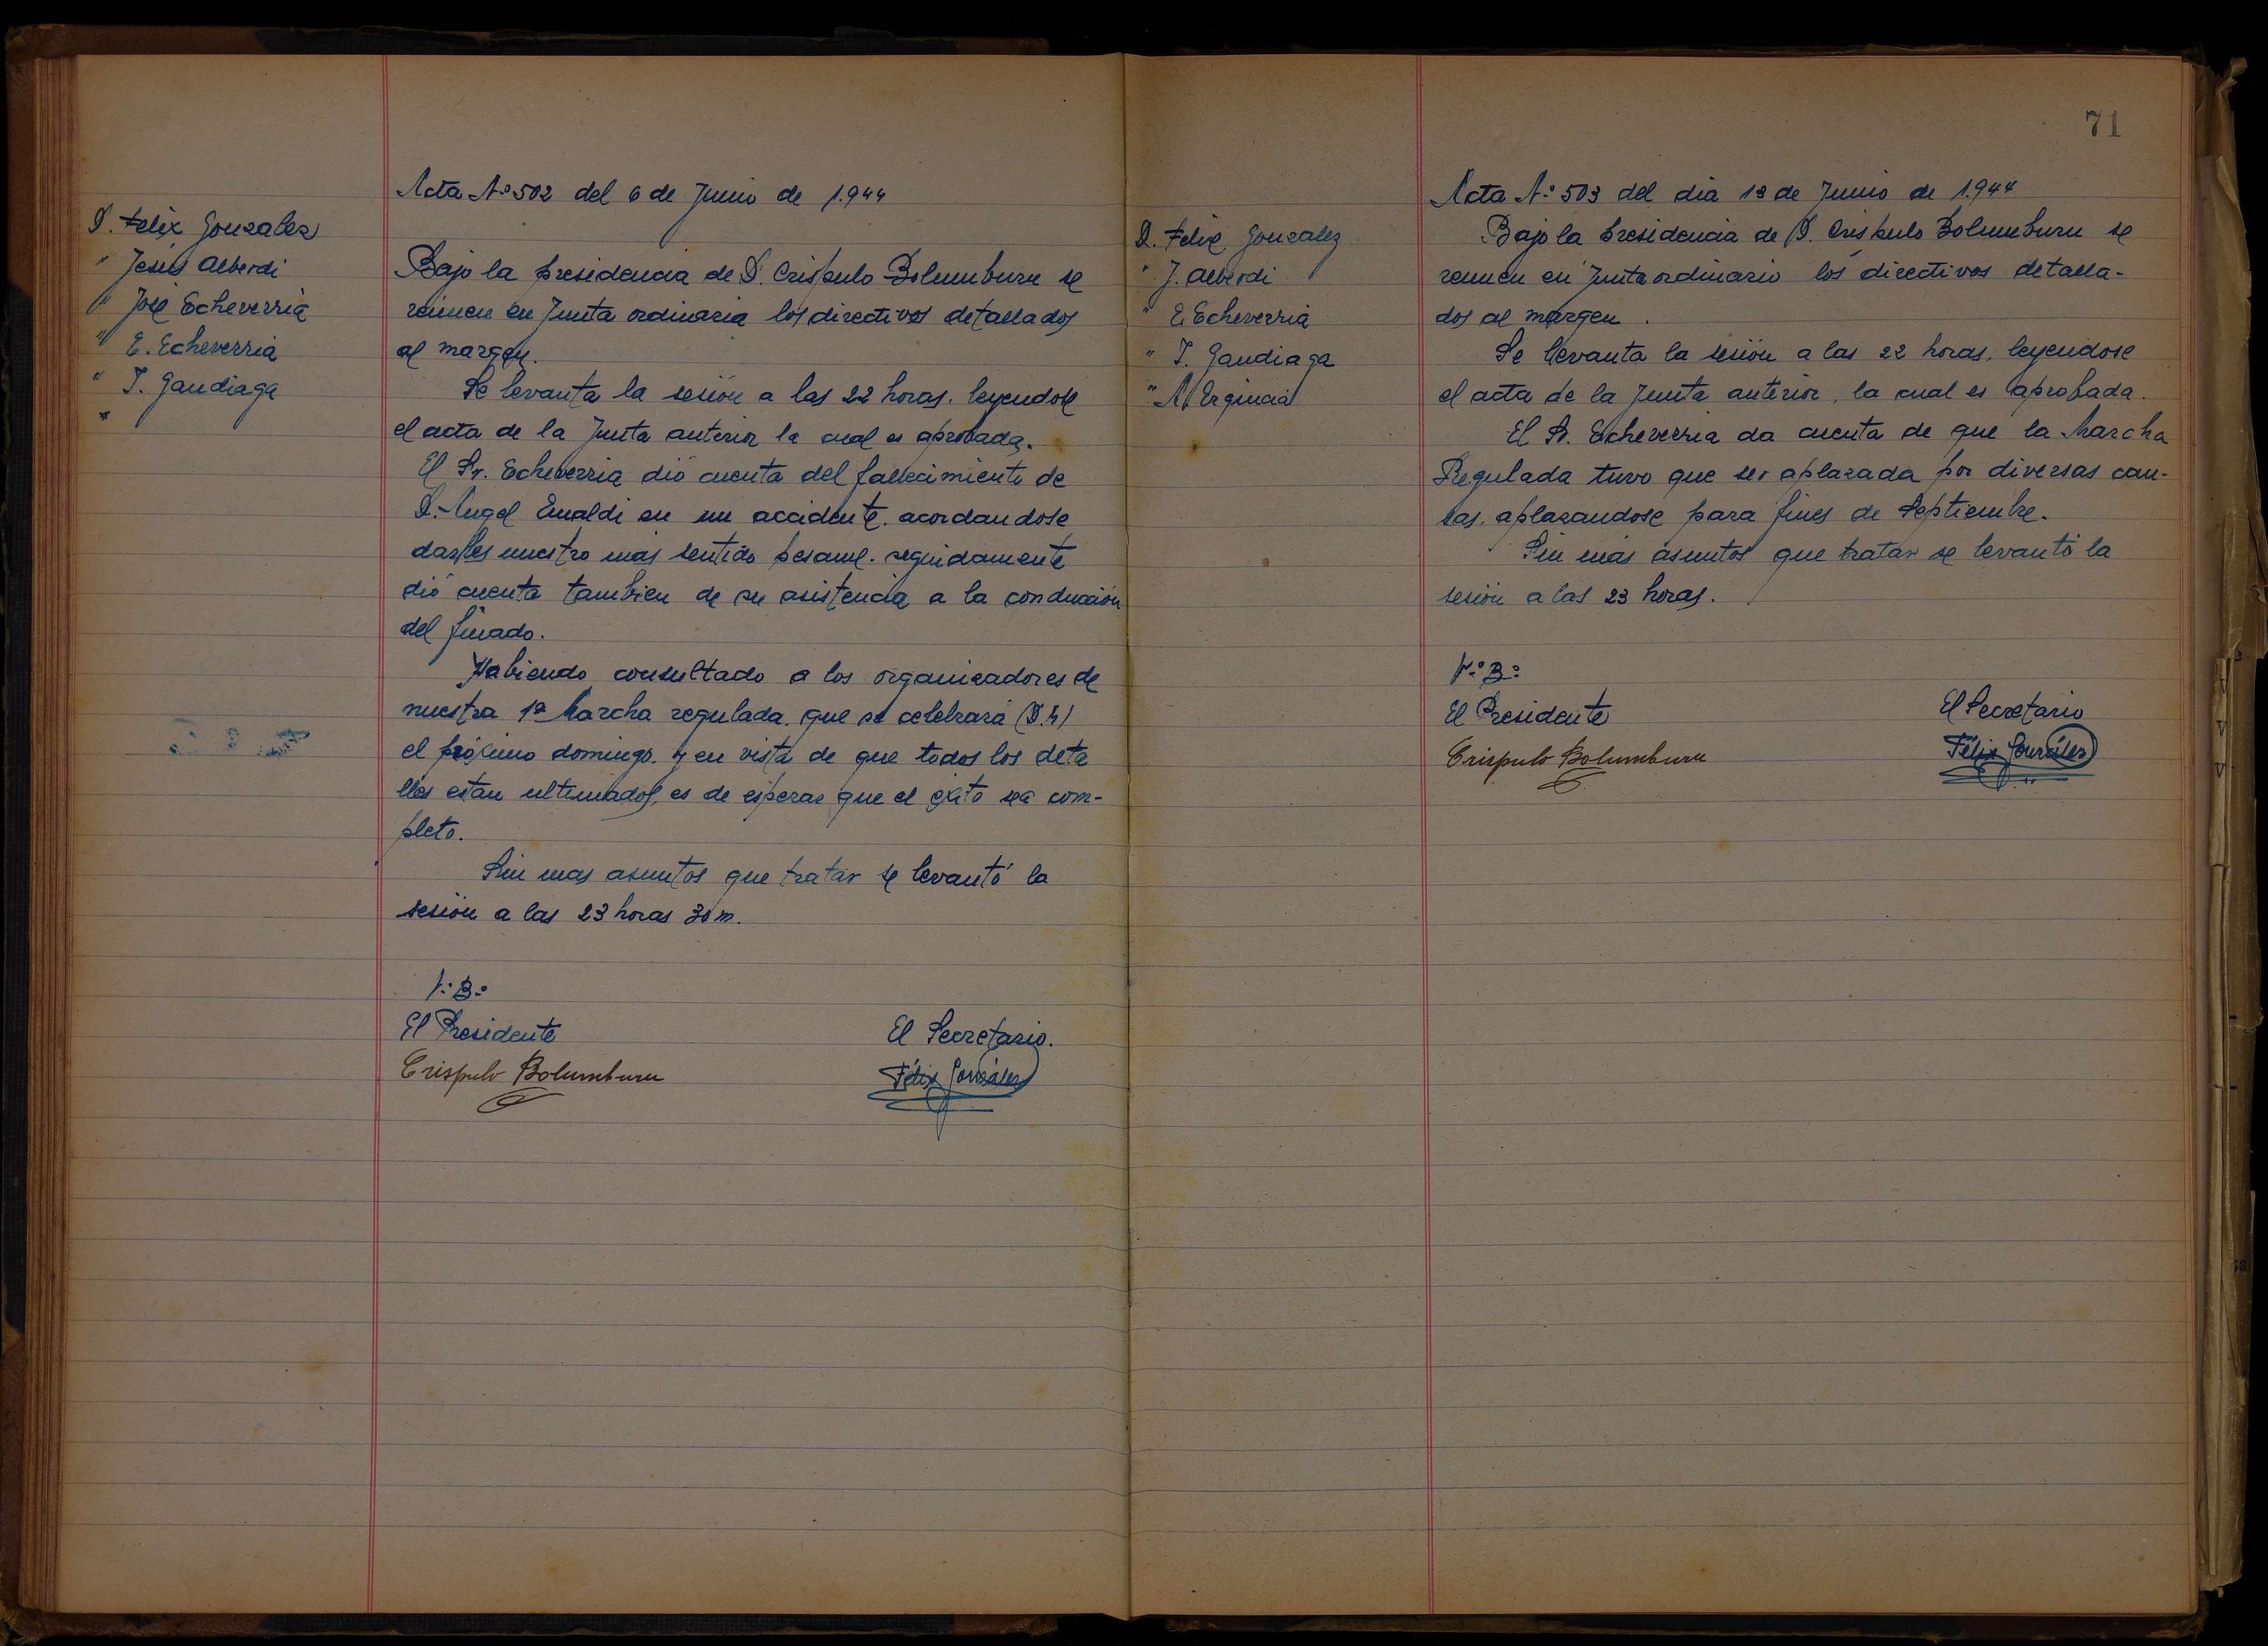 Acta Nº 502 del 6 de Junio de 1.944
D. Felix Gonzalez
" Jesus Alberdi
" Jose Echeverria
" E. Echeverria
" T. Gandiaga
"
Bajo la presidencia de D. Crispulo Bolumburu se
reunen en Junta ordinaria los directivos detallados
al margen.
Se levanta la sesión a las 22 horas. leyendose
el acta de la Junta anterior la cual es aprobada.
El Sr. Echeverria dió cuenta del fallecimiento de
D. Angel en un accidente. acordandose
darles nuestro mas sentido pesame. seguidamente
dió cuenta tambien de su asistencia a la conducción
del finado.
Habiendo consultado a los organizadores de
nuestra 1ª Marcha regulada. que se celebrará (D.M)
el próximo domingo. y en vista de que todos los deta
lles estan ultimados, es de esperar que el éxito sea com-
pleto.
Sin mas asuntos que tratar se levantó la
sesión a las 23 horas 30 m.
Vº Bº
El Presidente
Crispulo Bolumburu
El Secretario.
Félix González
71
Acta Nº 503 del dia 13 de Junio de 1.944
D. Felix Gonzalez
" J. Alberdi
" E. Echeverria
" T. Gandiaga
Bajo la presidencia de D. Crispulo Bolumburu se
reunen en Junta ordinario los directivos detalla-
dos al margen.
Se levanta la sesión a las 22 horas. leyendose
el acta de la Junta anterior, la cual es aprobada.
El Sr. Echeverria da cuenta de que la Marcha
Regulada tuvo que ser aplazada por diversas cau-
sas. aplazandose para fines de Septiembre.
Sin mas asuntos que tratar se levantó la
sesión a las 23 horas.
Vº Bº
El Presidente
Crispulo Bolumburu
El Secretario
Félix González